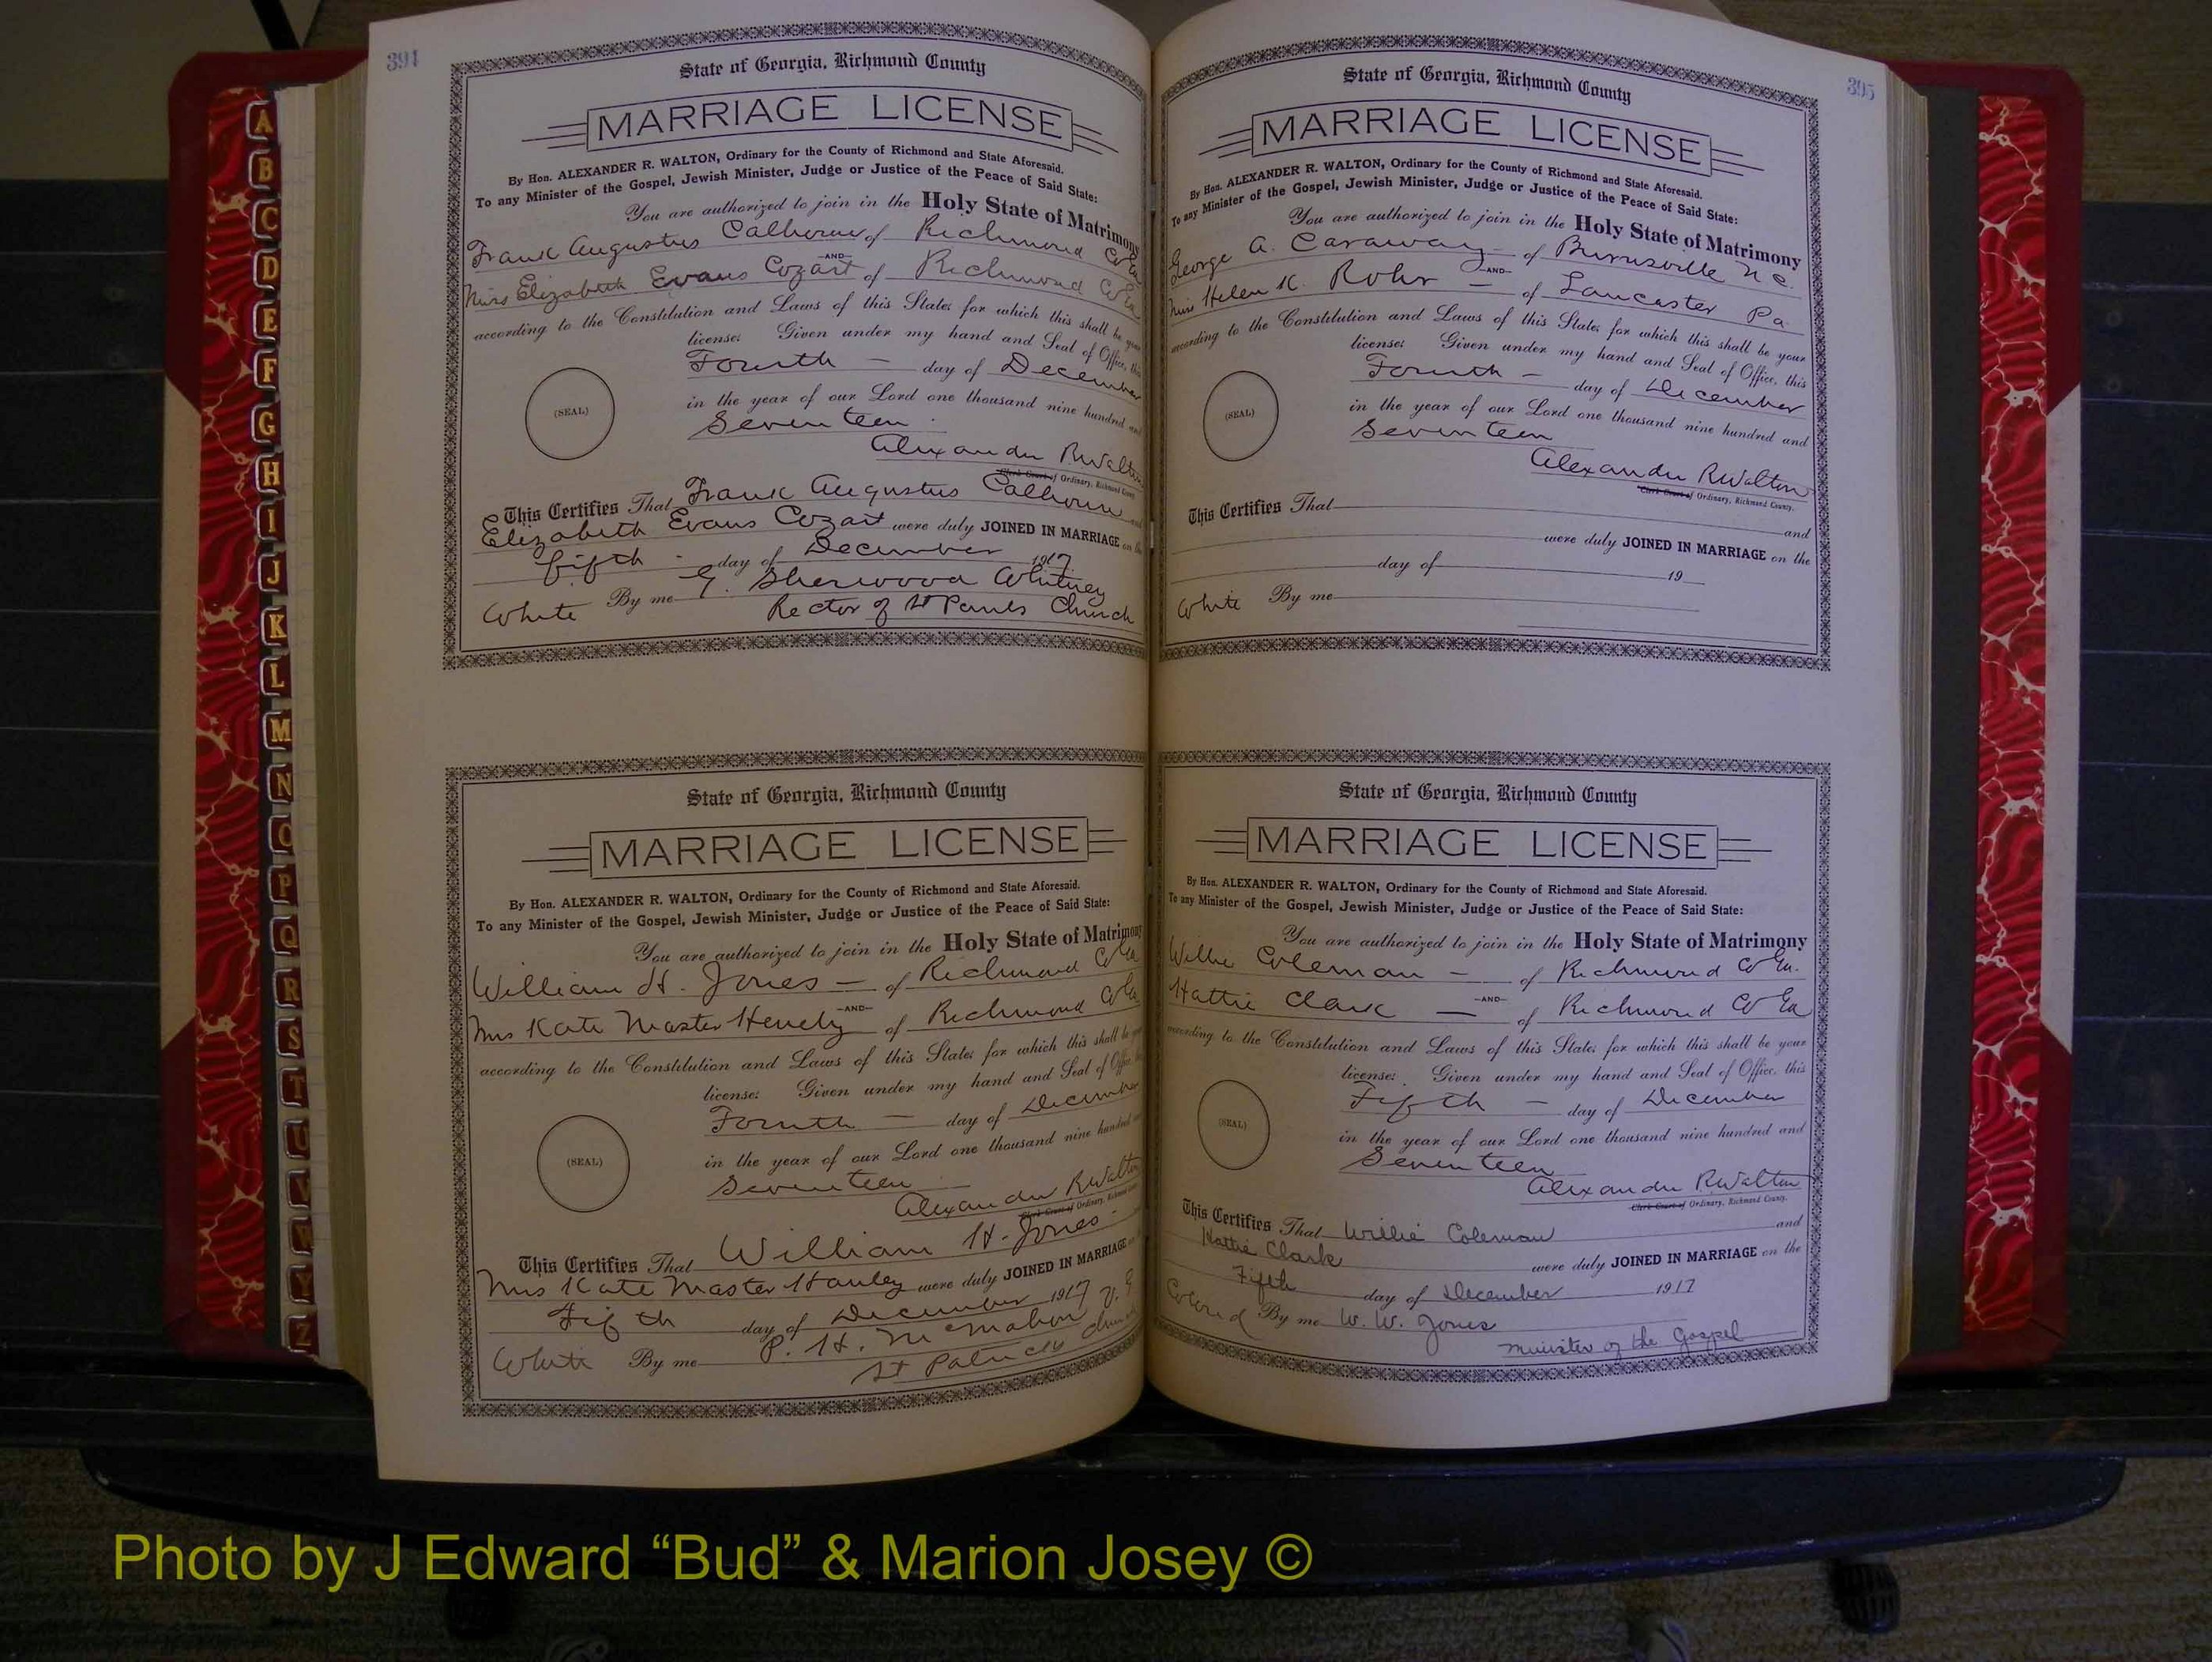 394
State of Georgia, Richmond County
MARRIAGE LICENSE
By Hon. ALEXANDER R. WALTON, Ordinary for the County of Richmond and State Aforesaid.
To any Minister of the Gospel, Jewish Minister, Judge or Justice of the Peace of Said State:
You are authorized to join in the Holy State of Matrimony
Frank Augustus Calhoun of Richmond Co Ga
—AND—
Miss Elizabeth Evans Cozart of Richmond Co Ga
according to the Constitution and Laws of this State; for which this shall be your
license: Given under my hand and Seal of Office, this
Fourth — day of December
(SEAL)
in the year of our Lord one thousand nine hundred and
Seventeen
Alexander R Walton
Clerk Court of Ordinary, Richmond County
This Certifies That Frank Augustus Calhoun and
Elizabeth Evans Cozart were duly JOINED IN MARRIAGE on the
fifth - day of December 1917
White By me G. Sherwood Whitney
Rector of St Pauls Church
State of Georgia, Richmond County
MARRIAGE LICENSE
By Hon. ALEXANDER R. WALTON, Ordinary for the County of Richmond and State Aforesaid.
To any Minister of the Gospel, Jewish Minister, Judge or Justice of the Peace of Said State:
You are authorized to join in the Holy State of Matrimony
William H. Jones — of Richmond Co Ga
—AND—
Mrs Kate Master Henely of Richmond Co Ga
according to the Constitution and Laws of this State; for which this shall be your
license: Given under my hand and Seal of Office, this
Fourth — day of December
(SEAL)
in the year of our Lord one thousand nine hundred and
Seventeen
Alexander R Walton
Clerk Court of Ordinary, Richmond County
This Certifies That William H. Jones -
Mrs Kate Master Hanley were duly JOINED IN MARRIAGE on
Fifth day of December 1917
White By me P. H. McMahon V. G
St Patricks Church
395
State of Georgia, Richmond County
MARRIAGE LICENSE
By Hon. ALEXANDER R. WALTON, Ordinary for the County of Richmond and State Aforesaid.
To any Minister of the Gospel, Jewish Minister, Judge or Justice of the Peace of Said State:
You are authorized to join in the Holy State of Matrimony
George A. Caraway — of Burnsville N C.
—AND—
Miss Helen K. Rohr — of Lancaster Pa
according to the Constitution and Laws of this State; for which this shall be your
license: Given under my hand and Seal of Office, this
Fourth — day of December
(SEAL)
in the year of our Lord one thousand nine hundred and
Seventeen
Alexander R Walton
Clerk Court of Ordinary, Richmond County.
This Certifies That
and
were duly JOINED IN MARRIAGE on the
day of 19
White By me
State of Georgia, Richmond County
MARRIAGE LICENSE
By Hon. ALEXANDER R. WALTON, Ordinary for the County of Richmond and State Aforesaid.
To any Minister of the Gospel, Jewish Minister, Judge or Justice of the Peace of Said State:
You are authorized to join in the Holy State of Matrimony
Willie Coleman — of Richmond Co Ga.
—AND—
Hattie Clark — of Richmond Co Ga
according to the Constitution and Laws of this State; for which this shall be your
license: Given under my hand and Seal of Office, this
Fifth — day of December
(SEAL)
in the year of our Lord one thousand nine hundred and
Seventeen
Alexander R Walton
Clerk Court of Ordinary, Richmond County.
This Certifies That Willie Coleman and
Hattie Clark were duly JOINED IN MARRIAGE on the
Fifth day of December 1917
Colored By me W. W. Jones
Minister of the Gospel
A
B
C
D
E
F
G
H
I
J
K
L
M
N
O
P
Q
R
S
T
U
V
W
Y
Z
Photo by J Edward “Bud” & Marion Josey ©